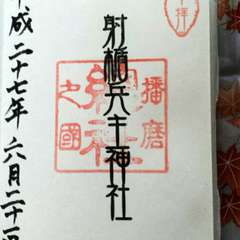 播磨
射楯兵主神社
總社
之國
平成二十七年六月二十